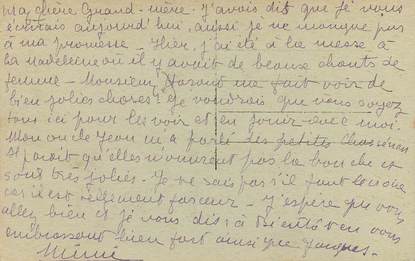 Ma chère Grand-mère - J'avais dit que je vous
écrirais aujourd'hui, aussi je ne manque pas
à ma promesse - Hier, j'ai été à la messe à
la Madeleine où il y avait de beaux chants de
femme - Monsieur me fait voir de
bien jolies choses. Je voudrais que vous soyez
tous ici pour les voir et en jouir avec moi.
Mon oncle Jean m'a parlé des petites
Il paraît qu'elles n'ouvrent pas la bouche et
sont très jolies - Je ne sais pas s'il faut le croire
car il est tellement farceur - J'espère que vous
allez bien et je vous dis à bientôt en vous
embrassant bien fort ainsi que Jacques -
Mimi